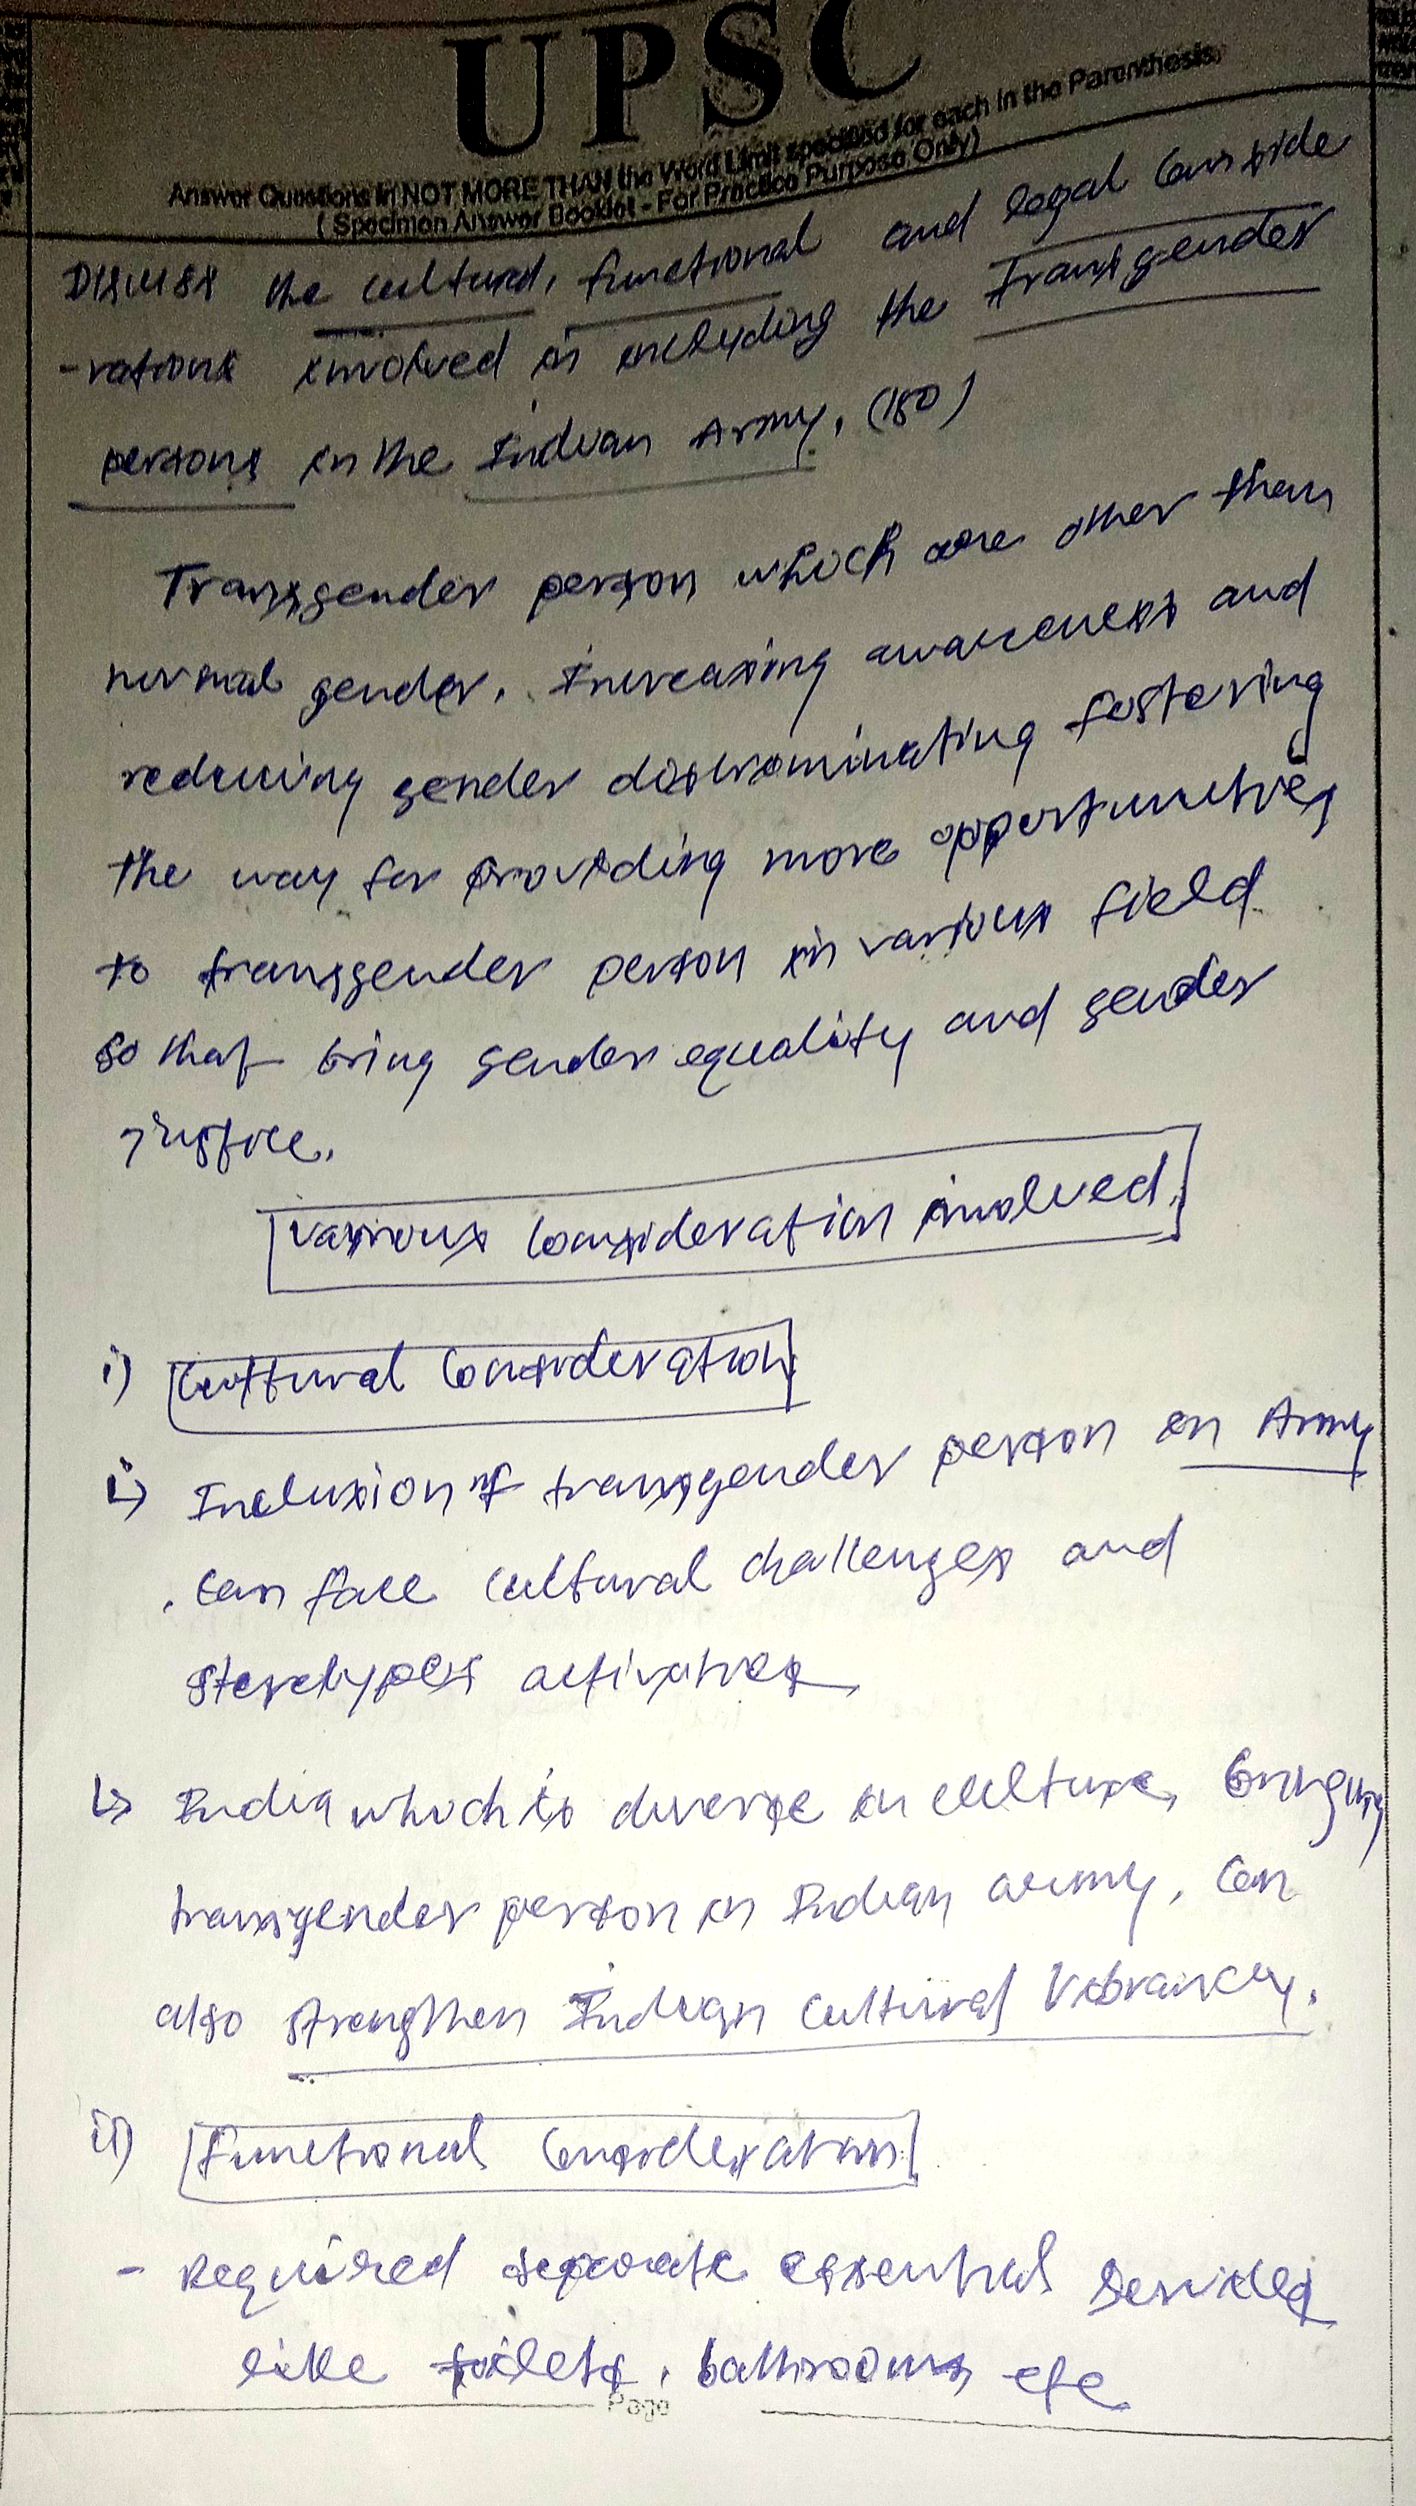 UPSC
Answer Questions in NOT MORE THAN the Word Limit specified for each in the Parenthesis.
( Specimen Answer Booklet - For Practice Purpose Only)
Discuss the cultural, functional and legal conside
-rations involved in including the Transgender
persons in the Indian Army. (150)
Transgender person which are other than
normal gender. Increasing awareness and
reducing gender discrominating fostering
the way for providing more opportunities
to transgender person in various field
so that bring gender equality and gender
justice.
Various Consideration involved
i) Cultural Consideration
↳ Inclusion of transgender person in Army
can face cultural challenges and
activities
↳ India which is diverse in culture, bringing
transgender person in Indian army, can
also strengthen Indian cultural Vibrancy.
ii) Functional Consideration
- Required separate essential services
like toilets, bathrooms, etc
Page